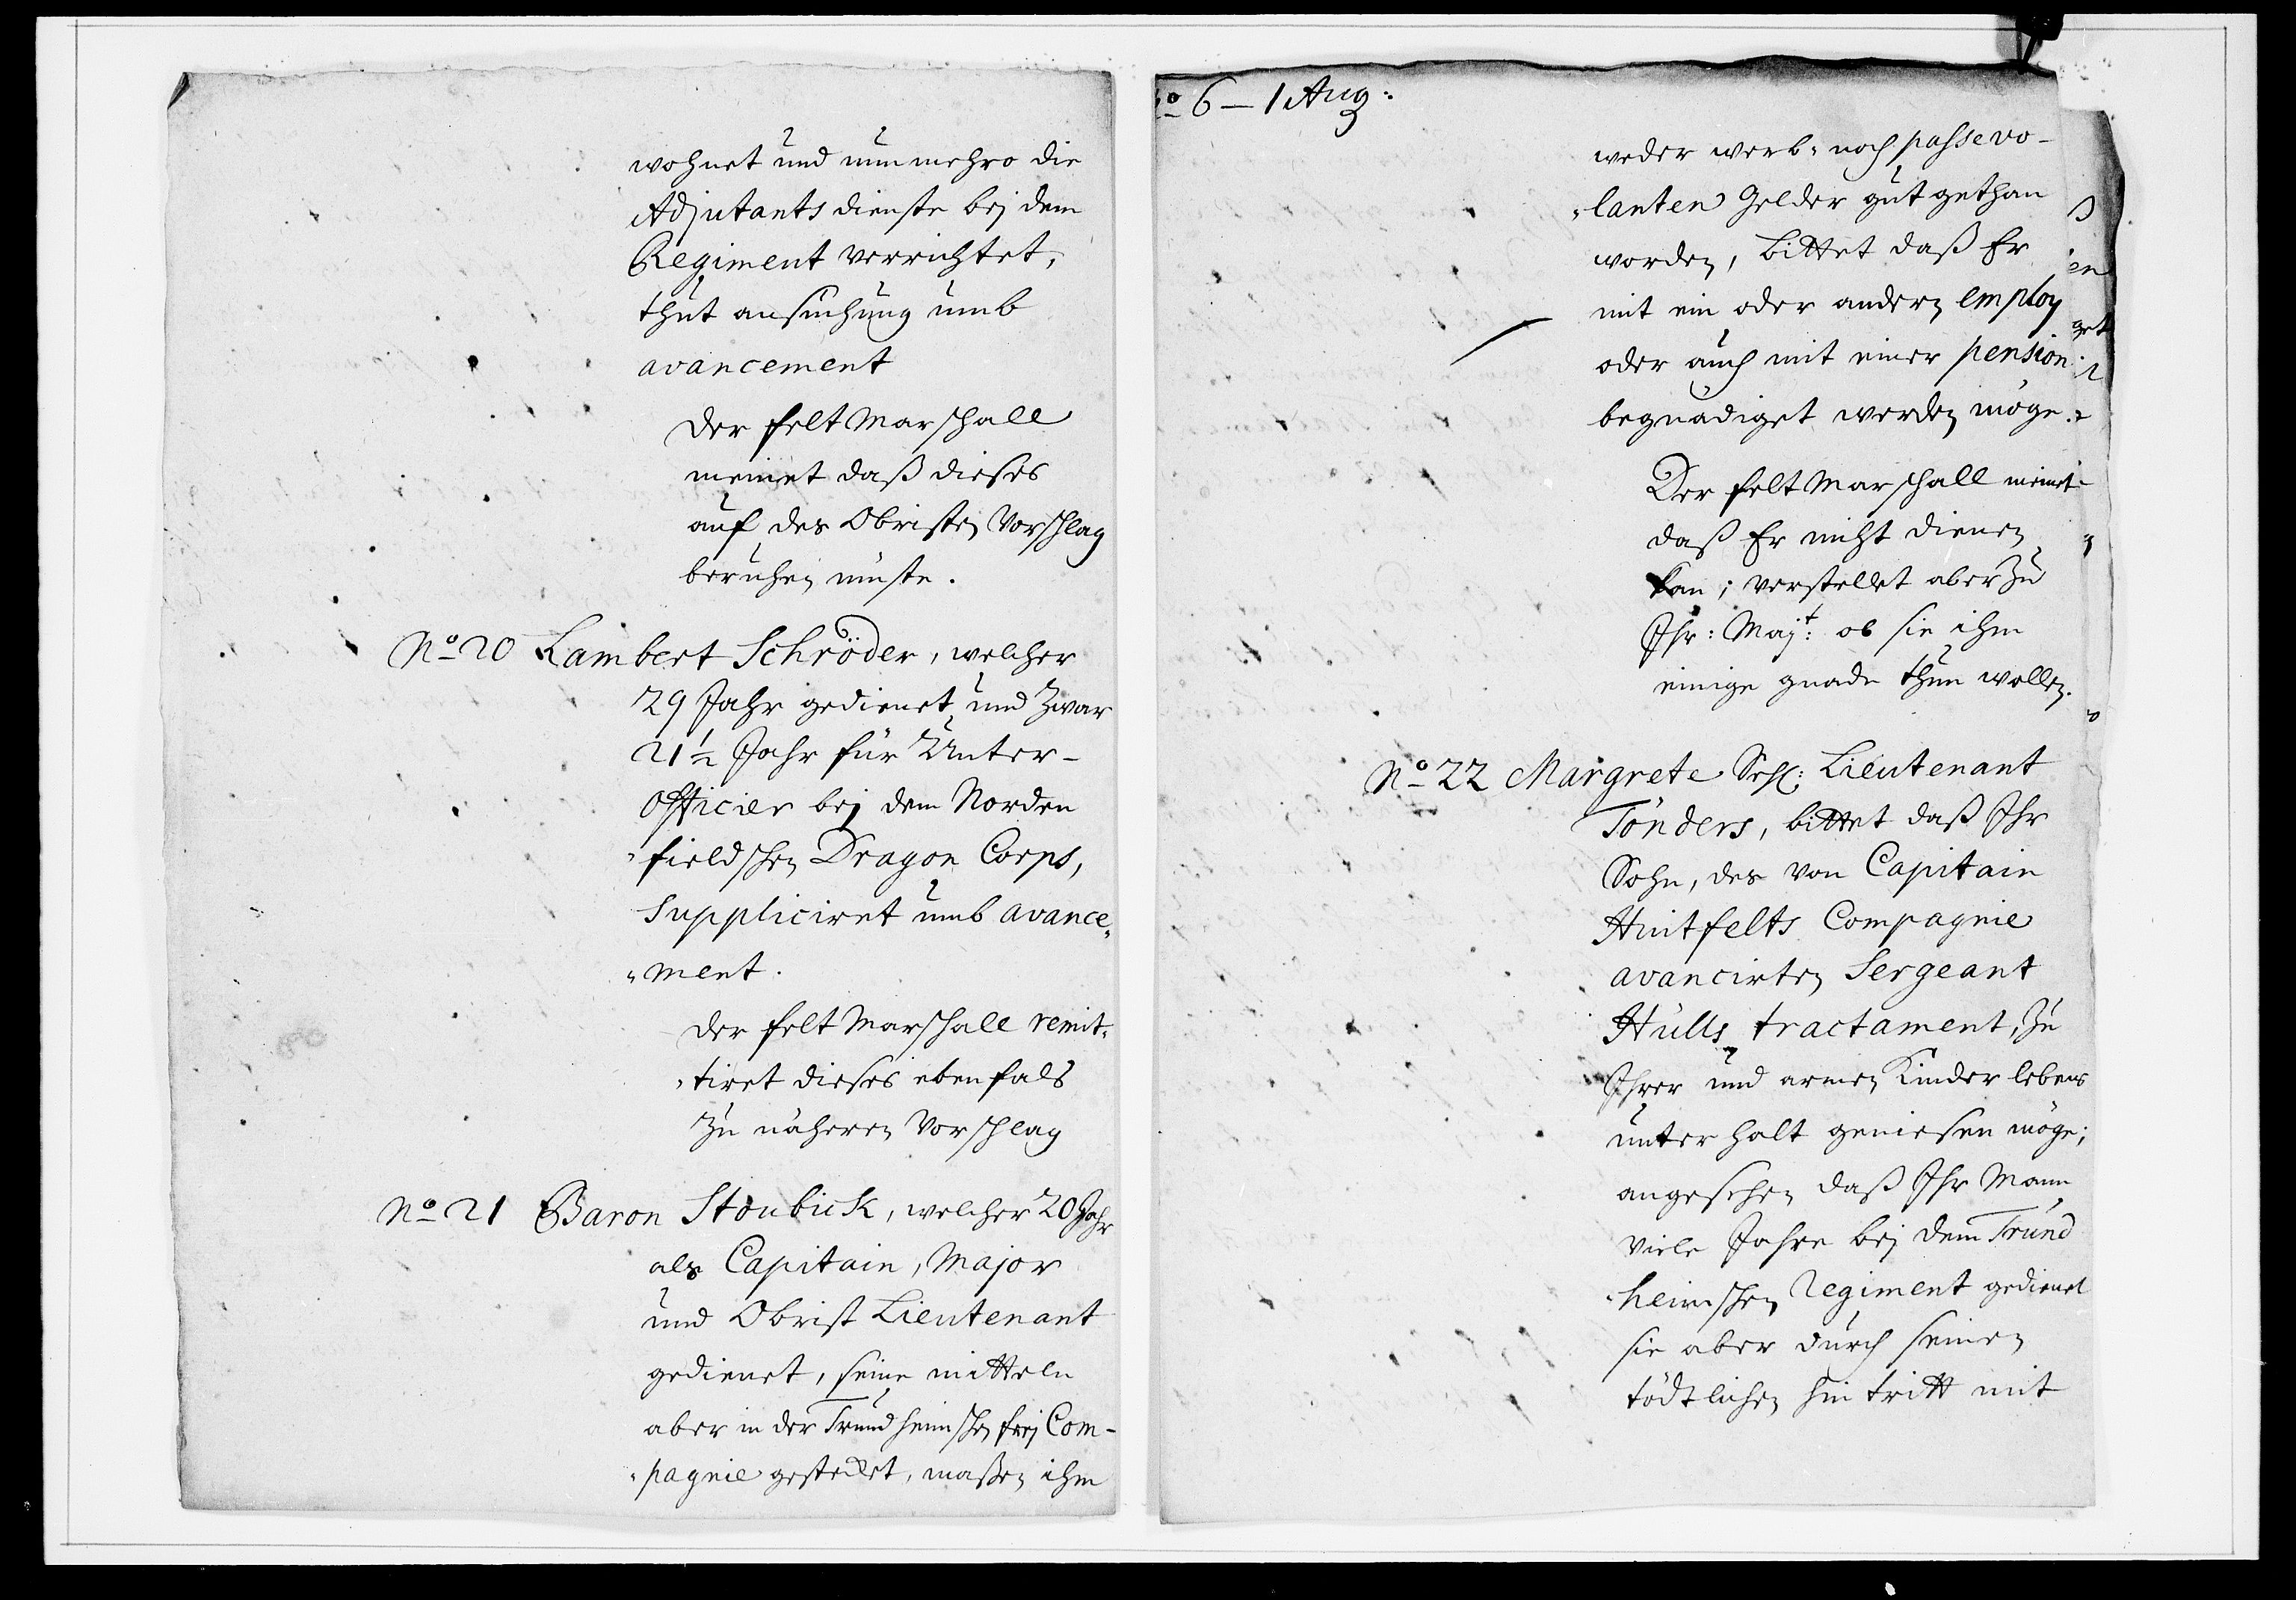 wohnet und nunmehro die
Adjutants dienste bej dem
Regiment verrichtet,
thut ansuchung umb
avancement
Der Felt Marschall
meinet daß dieses
auf des Obristen Vorschlag
beruhen müste.
No 20 Lambert Schröder, welcher
29 Jahr gedienet und zwar
21½ Jahr für Unter-
Officier bej dem Norden
fieldschen Dragon Corps,
Suppliciret umb avance
ment.
Der Felt Marschall remit-
tiret dieses ebenfals
zu näheren Vorschlag
No 21 Baron Stoubick, welcher 20 Jahr
als Capitain, Major
und Obrist Lieutenant
gedienet, seine mitteln
aber in der Trundheimschen frej Com-
pagnie gestecket, maßen ihm
o 6 - 1 Aug:
weder werb- noch passevo-
lanten Gelder gut gethan
worden, bittet daß Er
mit ein oder andern employ
oder auch mit einer pension
begnädiget werden möge.
Der Felt Marschall meinet
daß Er nicht dienen
kan; verstellet aber zu
Ihr: Majt: ob sie ihm
einige gnade thun wollen.
No 22 Margrete Sehl: Lieutenant
Tönders, bittet daß Ihr
Sohn, des von Capitain
Huitfelts Compagnie
avancirten Sergeant
Hülls tractament, zu
Ihrer und armen Kinder lebens
unterhalt geniesen möge;
angesehen daß Ihr Mann
viele Jahre bej dem Trund
heimschen Regiment gedienet
sie aber durch seinen
tödtlichen hintritt mit